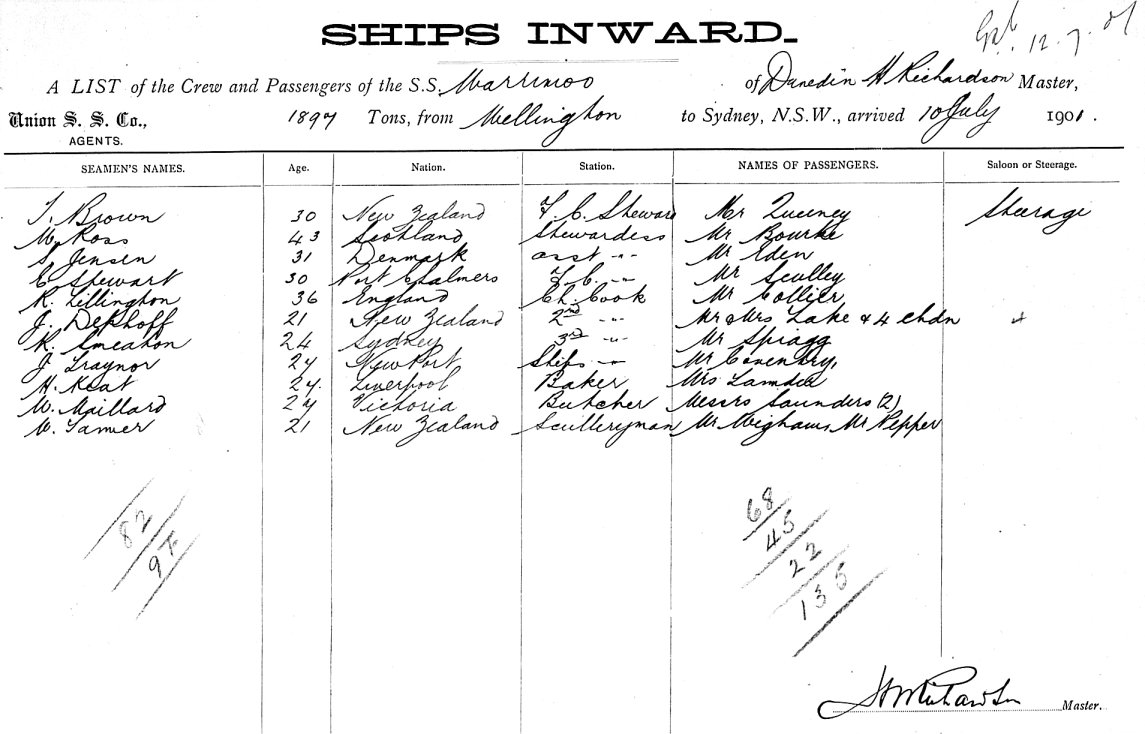 SHIPS INWARD.
12.7.01
A LIST of the Crew and Passengers of the S.S. Warrimoo of Dunedin H Richardson Master,
Union S. S. Co., 1897 Tons, from Wellington to Sydney, N.S.W., arrived 10 July 1901.
AGENTS.
SEAMEN'S NAMES. Age. Nation. Station. NAMES OF PASSENGERS. Saloon or Steerage.
T. Brown 30 New Zealand F. C. Steward Mr Queeney Steerage
M. Ross 43 Scotland Stewardess Mr Bourke
S. Jensen 31 Denmark asst -"- Mr Eden
E Stewart 30 Port Chalmers F. C. -"- Mr Sculley
R. Lillington 36 England Ch. Cook Mr Collier
J. Dekhoff 21 New Zealand 2nd -"- Mr & Mrs Lake & 4 chdn
R. Smeaton 24 Sydney 3rd -"- Mr Spragg
J Traynor 27 Newport Ships -"- Mr Coventry,
H. Keat 27. Liverpool Baker Mrs Lamdee
W. Maillard 27 Victoria Butcher Messrs Saunders (2)
W. Tanner 21 New Zealand Sculleryman Mr Mr Pepper
82 68
97 45
22
135
H Richardson Master.